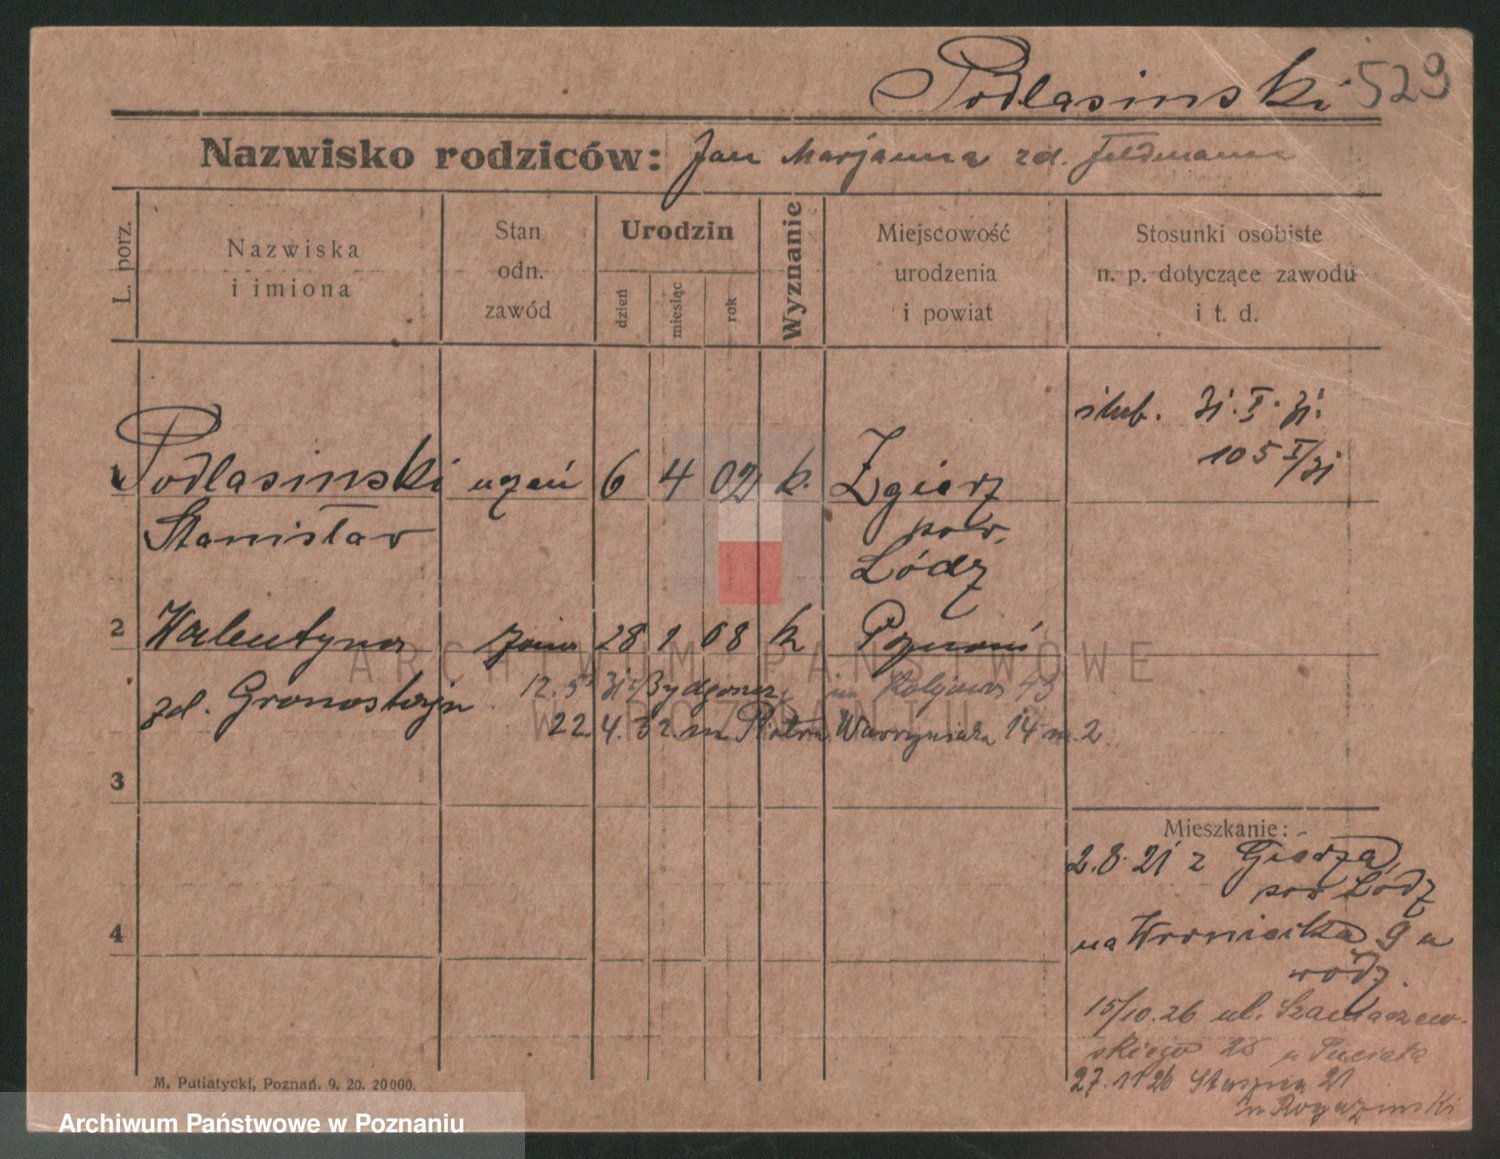 Podlasinski 529
Nazwisko rodziców: Jan Marjanna zd. Feldmann
L. porz.
Nazwiska
i imiona
Stan
odn.
zawód
Urodzin
dzień
miesiąc
rok
Wyznanie
Miejscowość
urodzenia
i powiat
Stosunki osobiste
n. p. dotyczące zawodu
i t. d.
ślub. 31. I. 31.
105 I/31
1 Podlasinski uczeń 6 4 02 k. Zgierz
Stanisław pow.
Łódź
2 Walentyna żona 28 1 08 k Poznań
zd. Gronostaja
12. 31 Bydgoszcz 43
22. 4. 32. m Piotra Wawrzyniaka 14 m. 2
3
4
Mieszkanie:
2.8.21 z Gierza,
pow Łódź
na Wroniecka 9 u
rodz.
15/10.26 ul. Szamarzew-
skiego 25 u Puciata
27.11 26 Staszica 21
u Rogazinski
M. Putiatycki, Poznań. 9. 20. 20000.
ARCHIWUM PAŃSTWOWE
W POZNANIU
Archiwum Państwowe w Poznaniu